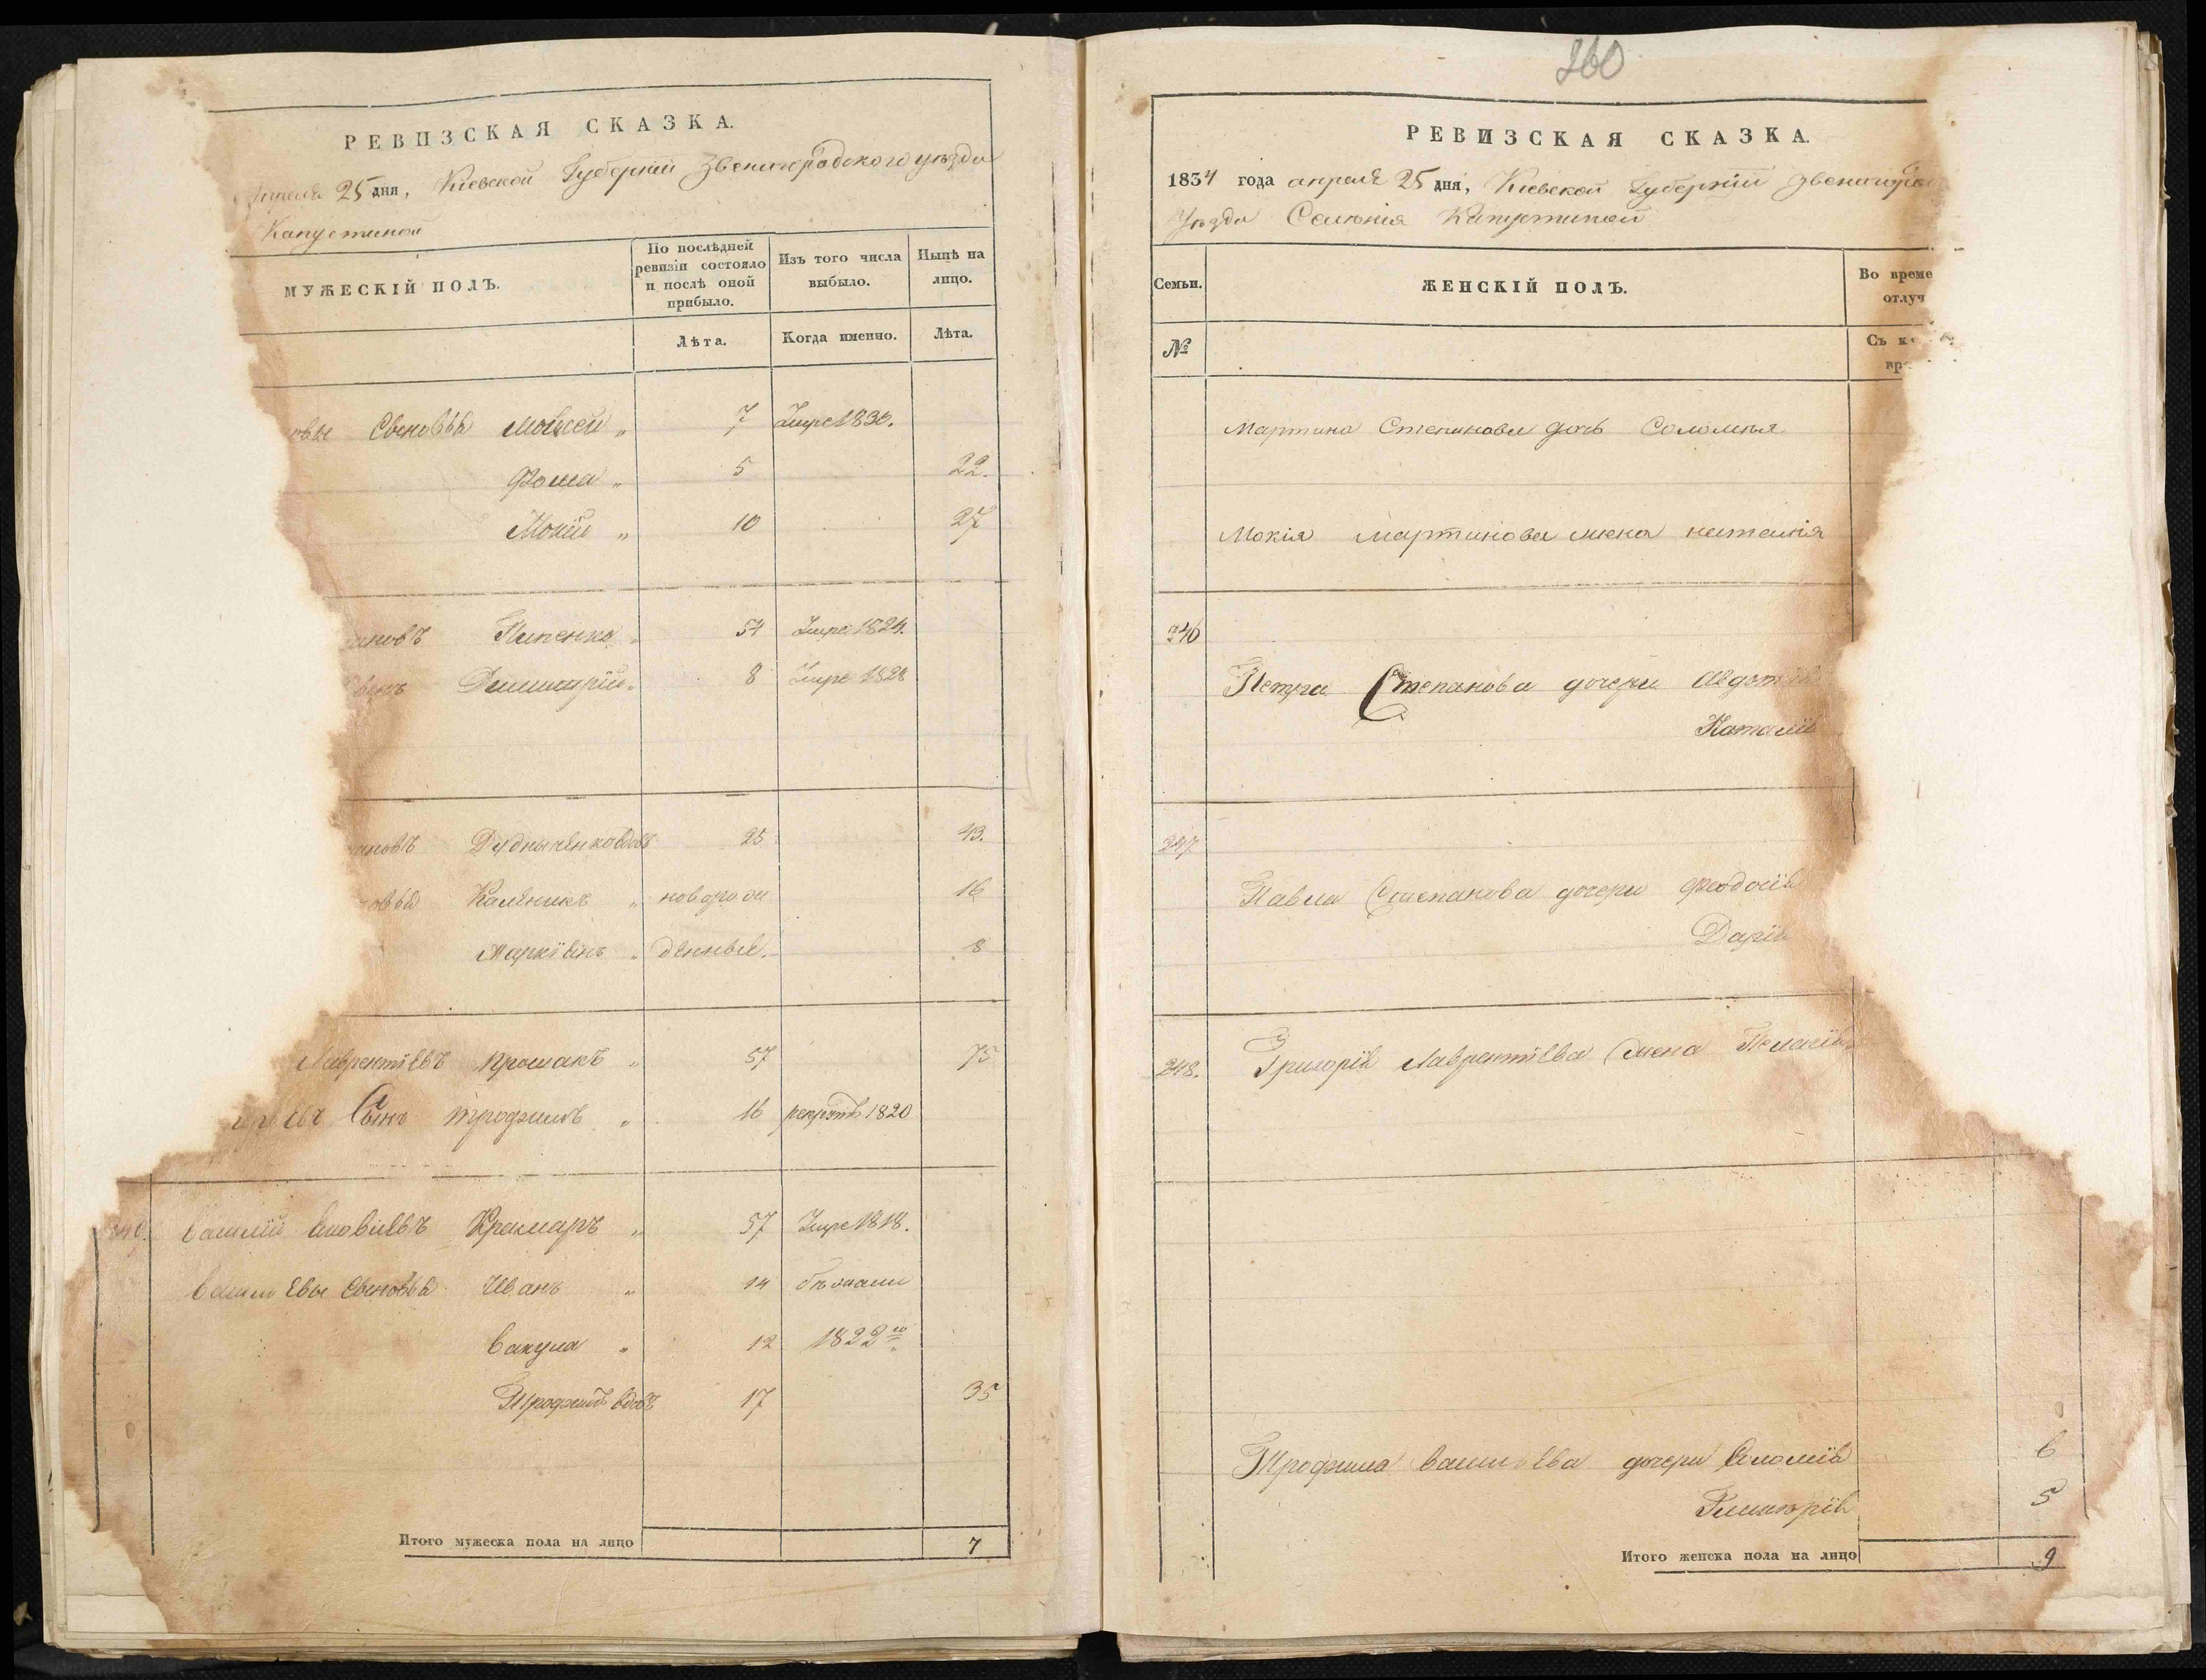 РЕВИЗСКАЯ СКАЗКА.
Апреля 25 дня, Кіевской Губерніи Звенигородского уѣзда
Капустиной
МУЖЕСКІЙ ПОЛЪ.
По послѣдней ревизіи состояло и послѣ оной прибыло.
Изъ того числа выбыло.
Нынѣ на лицо.
Лѣта.
Когда именно.
Лѣта.
овы Сыновья Мойсей „ 7 Умре 1830.
Фома „ 5 22.
Мокій „ 10 27
ановъ Пипенко „ 54 Умре 1824.
Сынъ Димитрій „ 8 Умре 1828
ановъ Дудныченко вдовъ 25 43.
овья Калѣникъ „ новорож 16
Маркіянъ „ денныя. 8
Лаврентіевъ Крошакъ „ 57 75
евъ Сынъ Трофимъ „ 16 рекрутъ 1820
249. Василій Яковлевъ Крамаръ „ 57 Умре 1818.
Васильевы Сыновья Иванъ „ 14 бѣжали
Вакула „ 12 1822го
Трофимъ вдовъ 17 35
Итого мужеска пола на лицо 7
260
РЕВИЗСКАЯ СКАЗКА.
1834 года апреля 25 дня, Кіевской Губерніи Звенигород
Уѣзда Селенія Капустиной
Семьи.
ЖЕНСКІЙ ПОЛЪ.
Во време
отлуч
№
Съ к
вр
Мартина Степанова дочь Соломія
Мокія Мартинова жена Наталія
246
Петра Степанова дочери Авдотія
Наталія
247
Павла Степанова дочери Феодосія
Дарія
248. Григорія Лаврентіева жена Пелагія
Трофима Васильева дочери Соломія 6
Гликерія 5
Итого женска пола на лицо 9